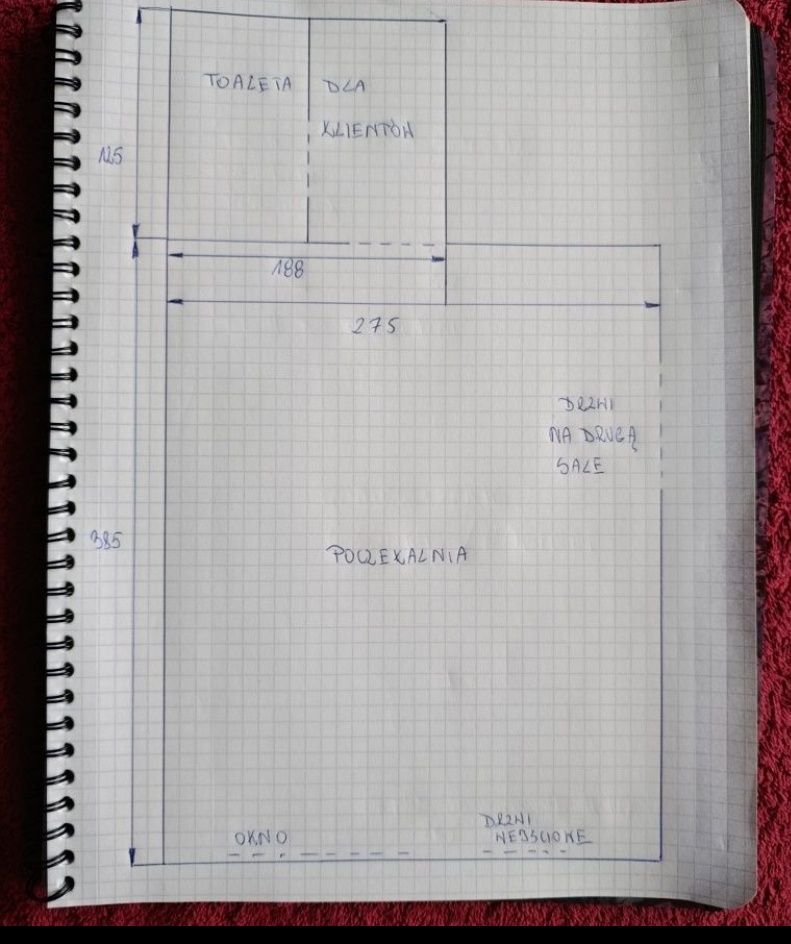 TOALETA DLA
KLIENTÓW
125
188
275
DRZWI
NA DRUGĄ
SALE
385
POCZEKALNIA
OKNO
DRZWI
WEJŚCIOWE